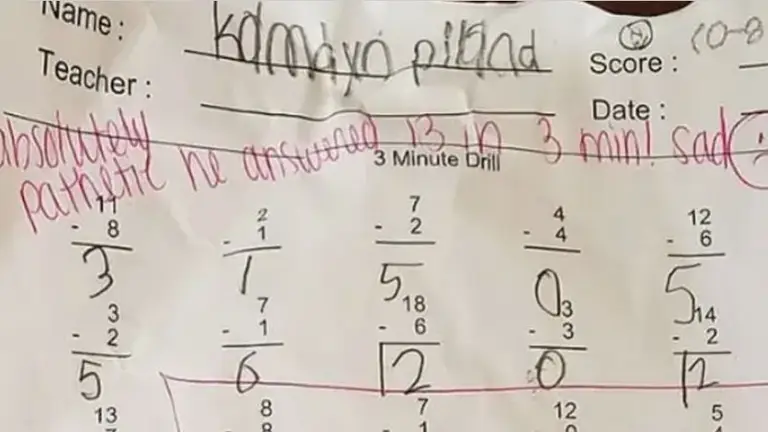 Name: Kamdyn piland Score: 10-8
Teacher: Date:
absolutely
pathetic he answered 13 in 3 min! sad
3 Minute Drill
11 2 7 4 12
- 8 - 1 - 2 - 4 - 6
3 1 5 0 5
3 7 18 3 14
- 2 - 1 - 6 - 3 - 2
5 6 12 0 12
13 8 7 12 5